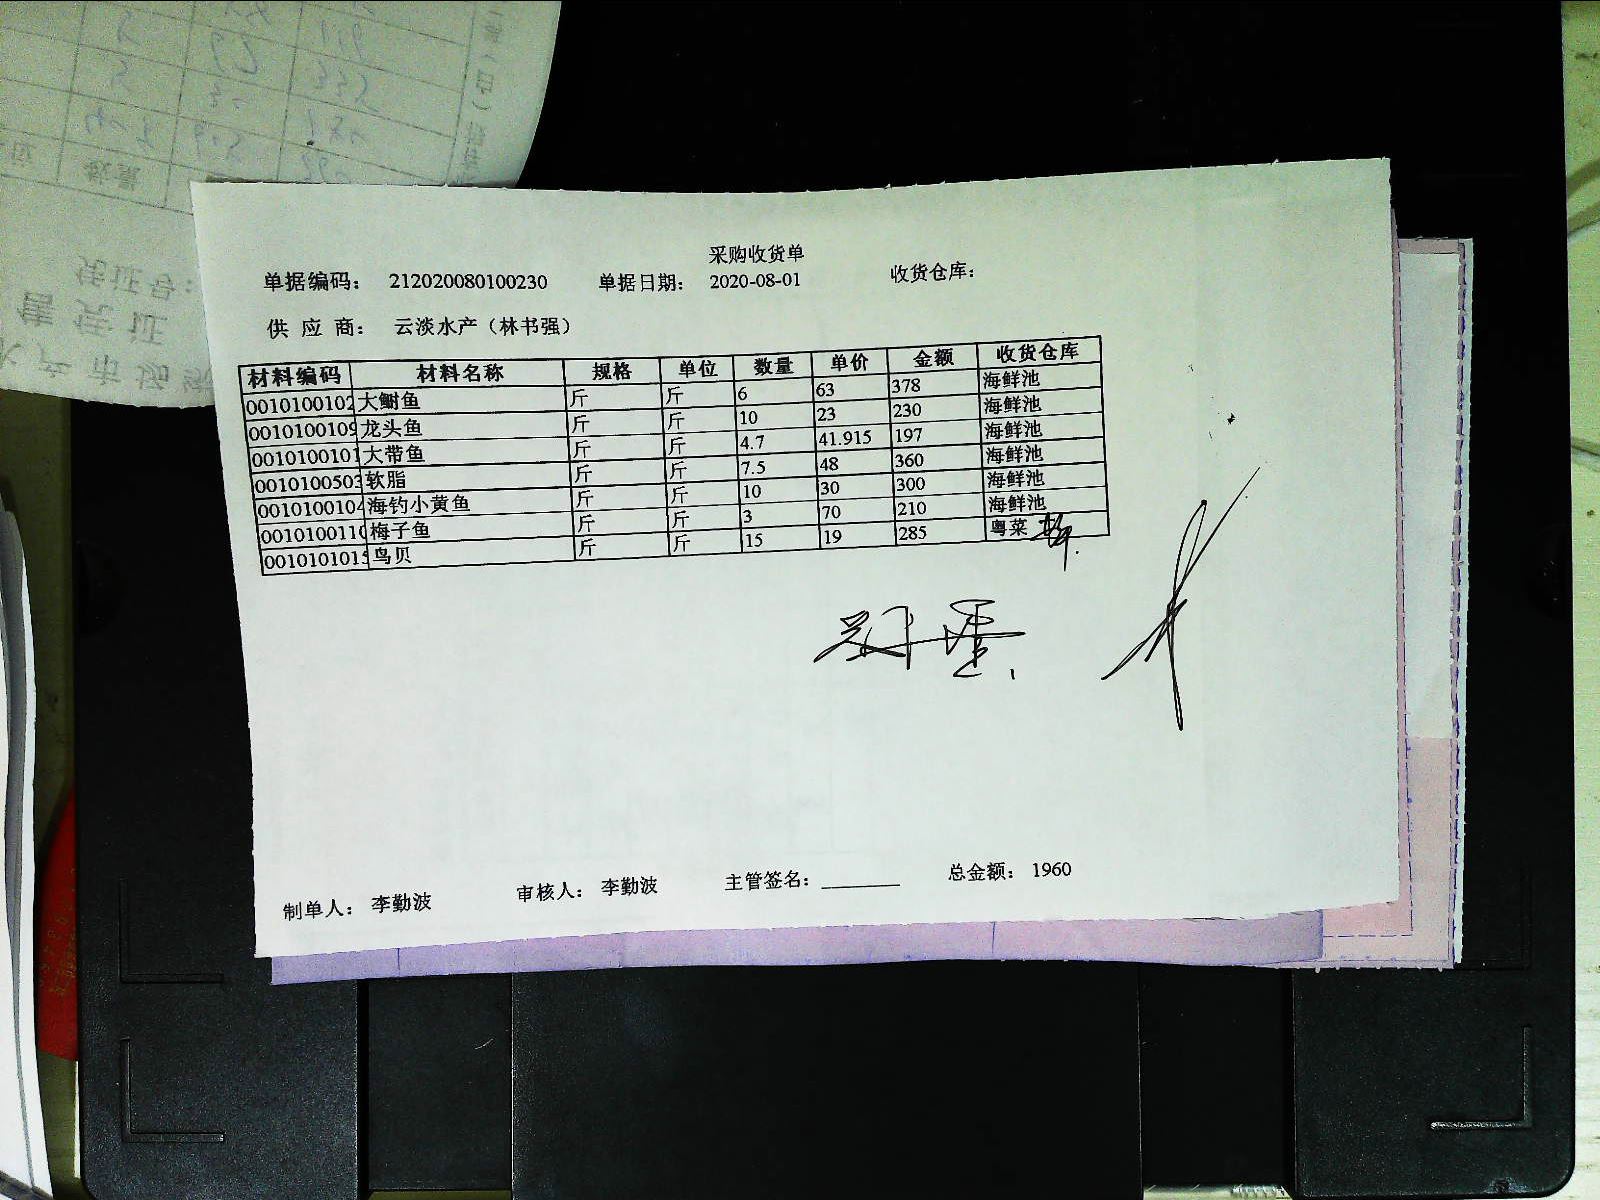 采购收货单
单据编码： 212020080100230 单据日期： 2020-08-01 收货仓库：
供 应 商： 云淡水产（林书强）
材料编码 材料名称 规格 单位 数量 单价 金额 收货仓库
0010100102 大鲥鱼 斤 斤 6 63 378 海鲜池
0010100109 龙头鱼 斤 斤 10 23 230 海鲜池
0010100101 大带鱼 斤 斤 4.7 41.915 197 海鲜池
0010100503 软脂 斤 斤 7.5 48 360 海鲜池
0010100104 海钓小黄鱼 斤 斤 10 30 300 海鲜池
0010100110 梅子鱼 斤 斤 3 70 210 海鲜池
0010101015 鸟贝 斤 斤 15 19 285 粤菜
制单人： 李勤波 审核人： 李勤波 主管签名：________ 总金额： 1960
凭证号：
售凭证
水产市场
数量